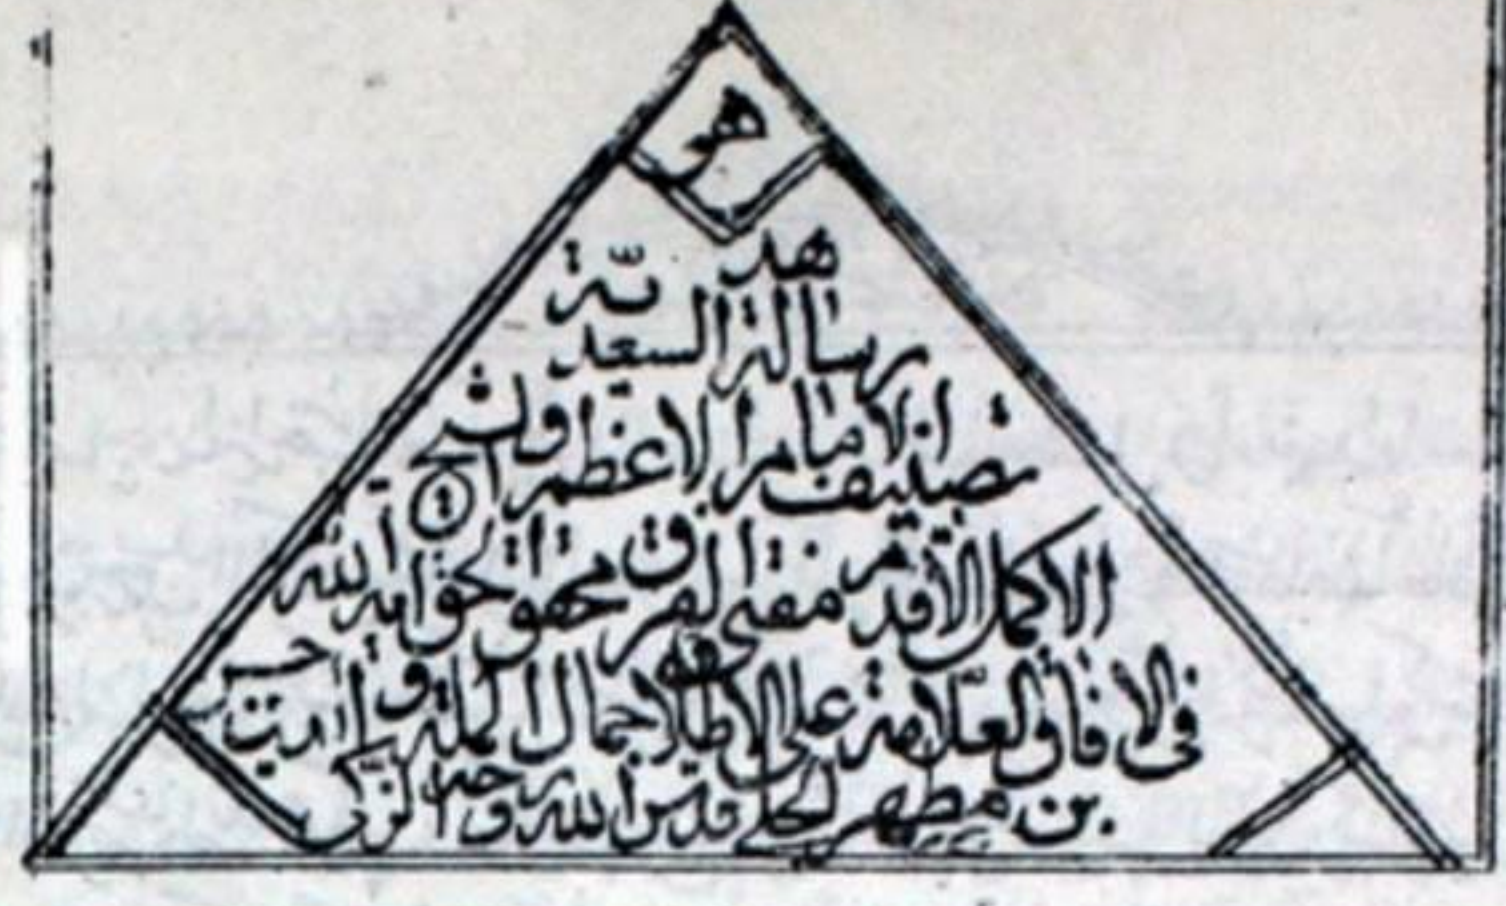 هو
هذه
رسالة السعدية
تصنيف الامام الاعظم والشيخ
الاكمل الاقدم مفتى الفرق محقق الحق آية الله
فى الافاق العلامة على الاطلاق جمال الملة و الدين حسن
بن مطهر الحلى قدس الله روحه الزكى